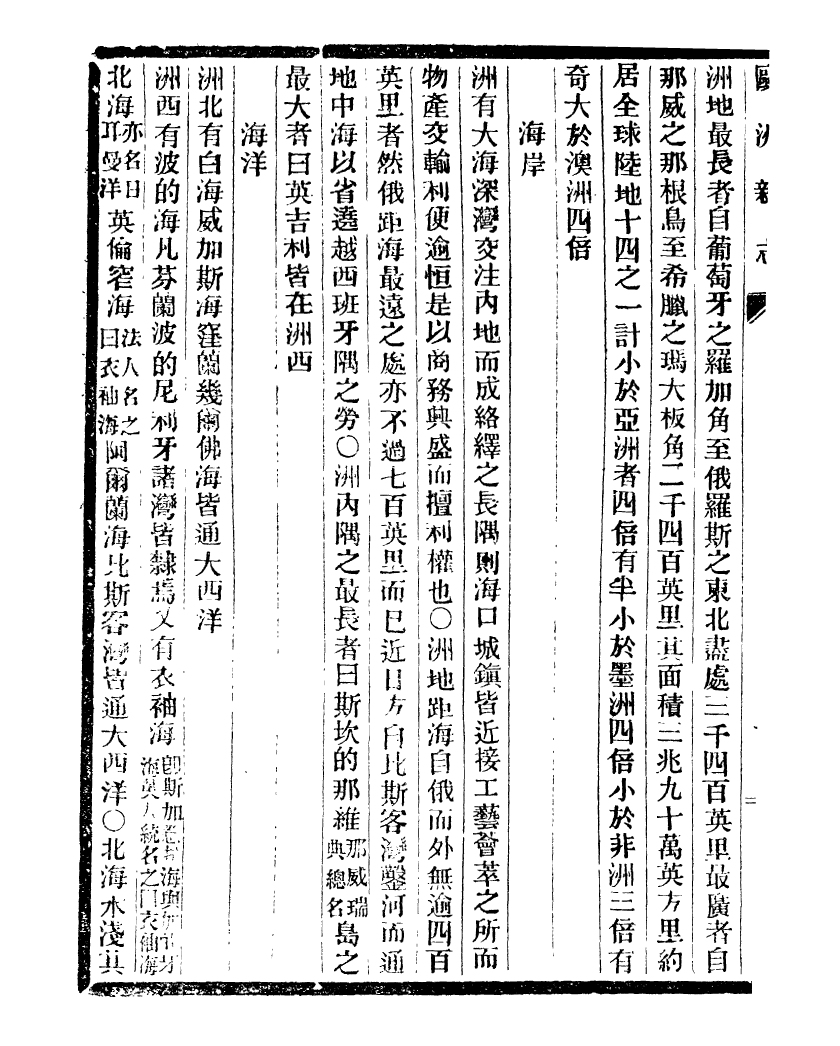 歐洲新志
洲地最長者自葡萄牙之羅加角至俄羅斯之東北盡處三千四百英里最廣者自
那威之那根島至希臘之瑪大板角二千四百英里其面積三兆九十萬英方里約
居全球陸地十四之一計小於亞洲者四倍有半小於墨洲四倍小於非洲三倍有
奇大於澳洲四倍
海岸
洲有大海深灣交注內地而成絡繹之長隅則海口城鎮皆近接工藝薈萃之所而
物產交輸利便逾恒是以商務興盛而擅利權也〇洲地距海自俄而外無逾四百
英里者然俄距海最遠之處亦不過七百英里而已近日方自比斯客灣鑿河而通
地中海以省遶越西班牙隅之勞〇洲內隅之最長者曰斯坎的那維那威瑞典總名島之
最大者曰英吉利皆在洲西
海洋
洲北有白海威加斯海窪蘭幾爾佛海皆通大西洋
洲西有波的海凡芬蘭波的尼利牙諸灣皆隸焉又有衣袖海卽斯加海與牙海英人統名之曰衣袖海
北海亦名日耳曼洋英倫窄海法人名之曰衣袖海阿爾蘭海比斯客灣皆通大西洋〇北海水淺其
二